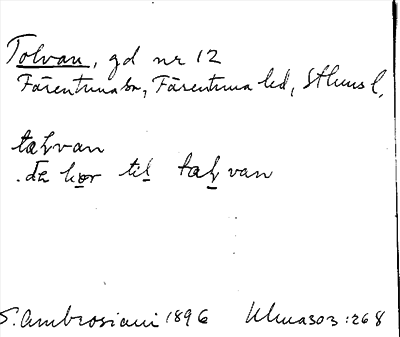 Tolvan, gd nr 12
Färentuna sn, Färentuna hd, Sthlms l.
tałvan
.då kør til tałvan
S. Ambrosiani 1896 Ulma303:268